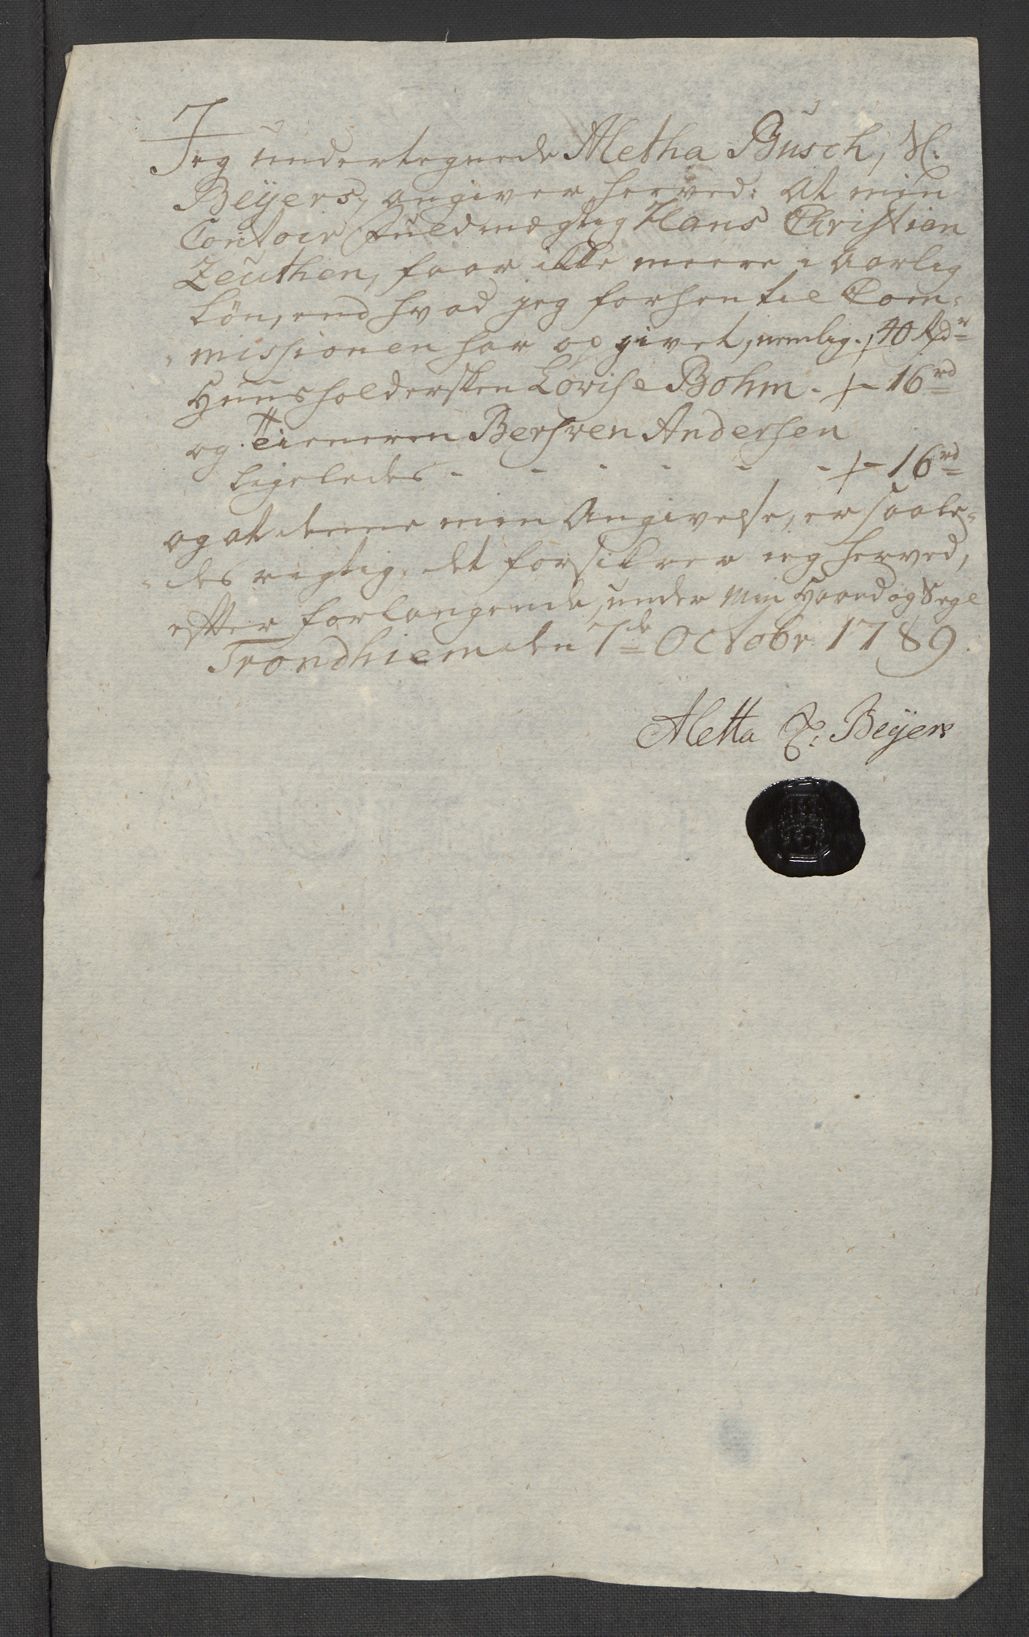 Jeg undertegnede Aletha Busch, Sl.
Beÿers, angiver herved: at min
Contoir Fuldmægtig Hans Christian
Zeuthen, faar ikke meere i aarlig
Løn, end hvad jeg forhen til Com-
missionen har opgivet, nemlig. 40 Rdr
Huusholdersken Lovise Bohm - 16 rd
og Tieneren Andersen
ligeledes - - - - - - 16 rd
og at denne min Angivelse, er saale-
des rigtig. det forsikrer ieg herved,
efter forlangende, under Min Haand og Segl
Trondhiem den 7de Octobr 1789.
Aletta Beÿers